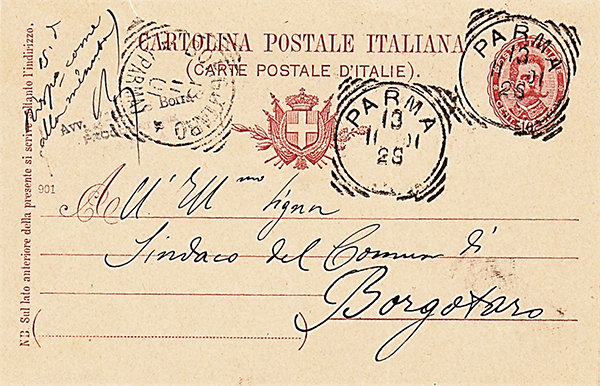 CARTOLINA POSTALE ITALIANA
(CARTE POSTALE D'ITALIE).
PARMA
13
11 01
2S
PARMA
13
11 01
2S
BORGOTARO
(PARMA)
Avv.
Borra
come
alla minuta
901
All' Ill.mo Signor
Sindaco del Comune di
Borgotaro
NB. Sul lato anteriore della presente si scrive soltanto l'indirizzo.